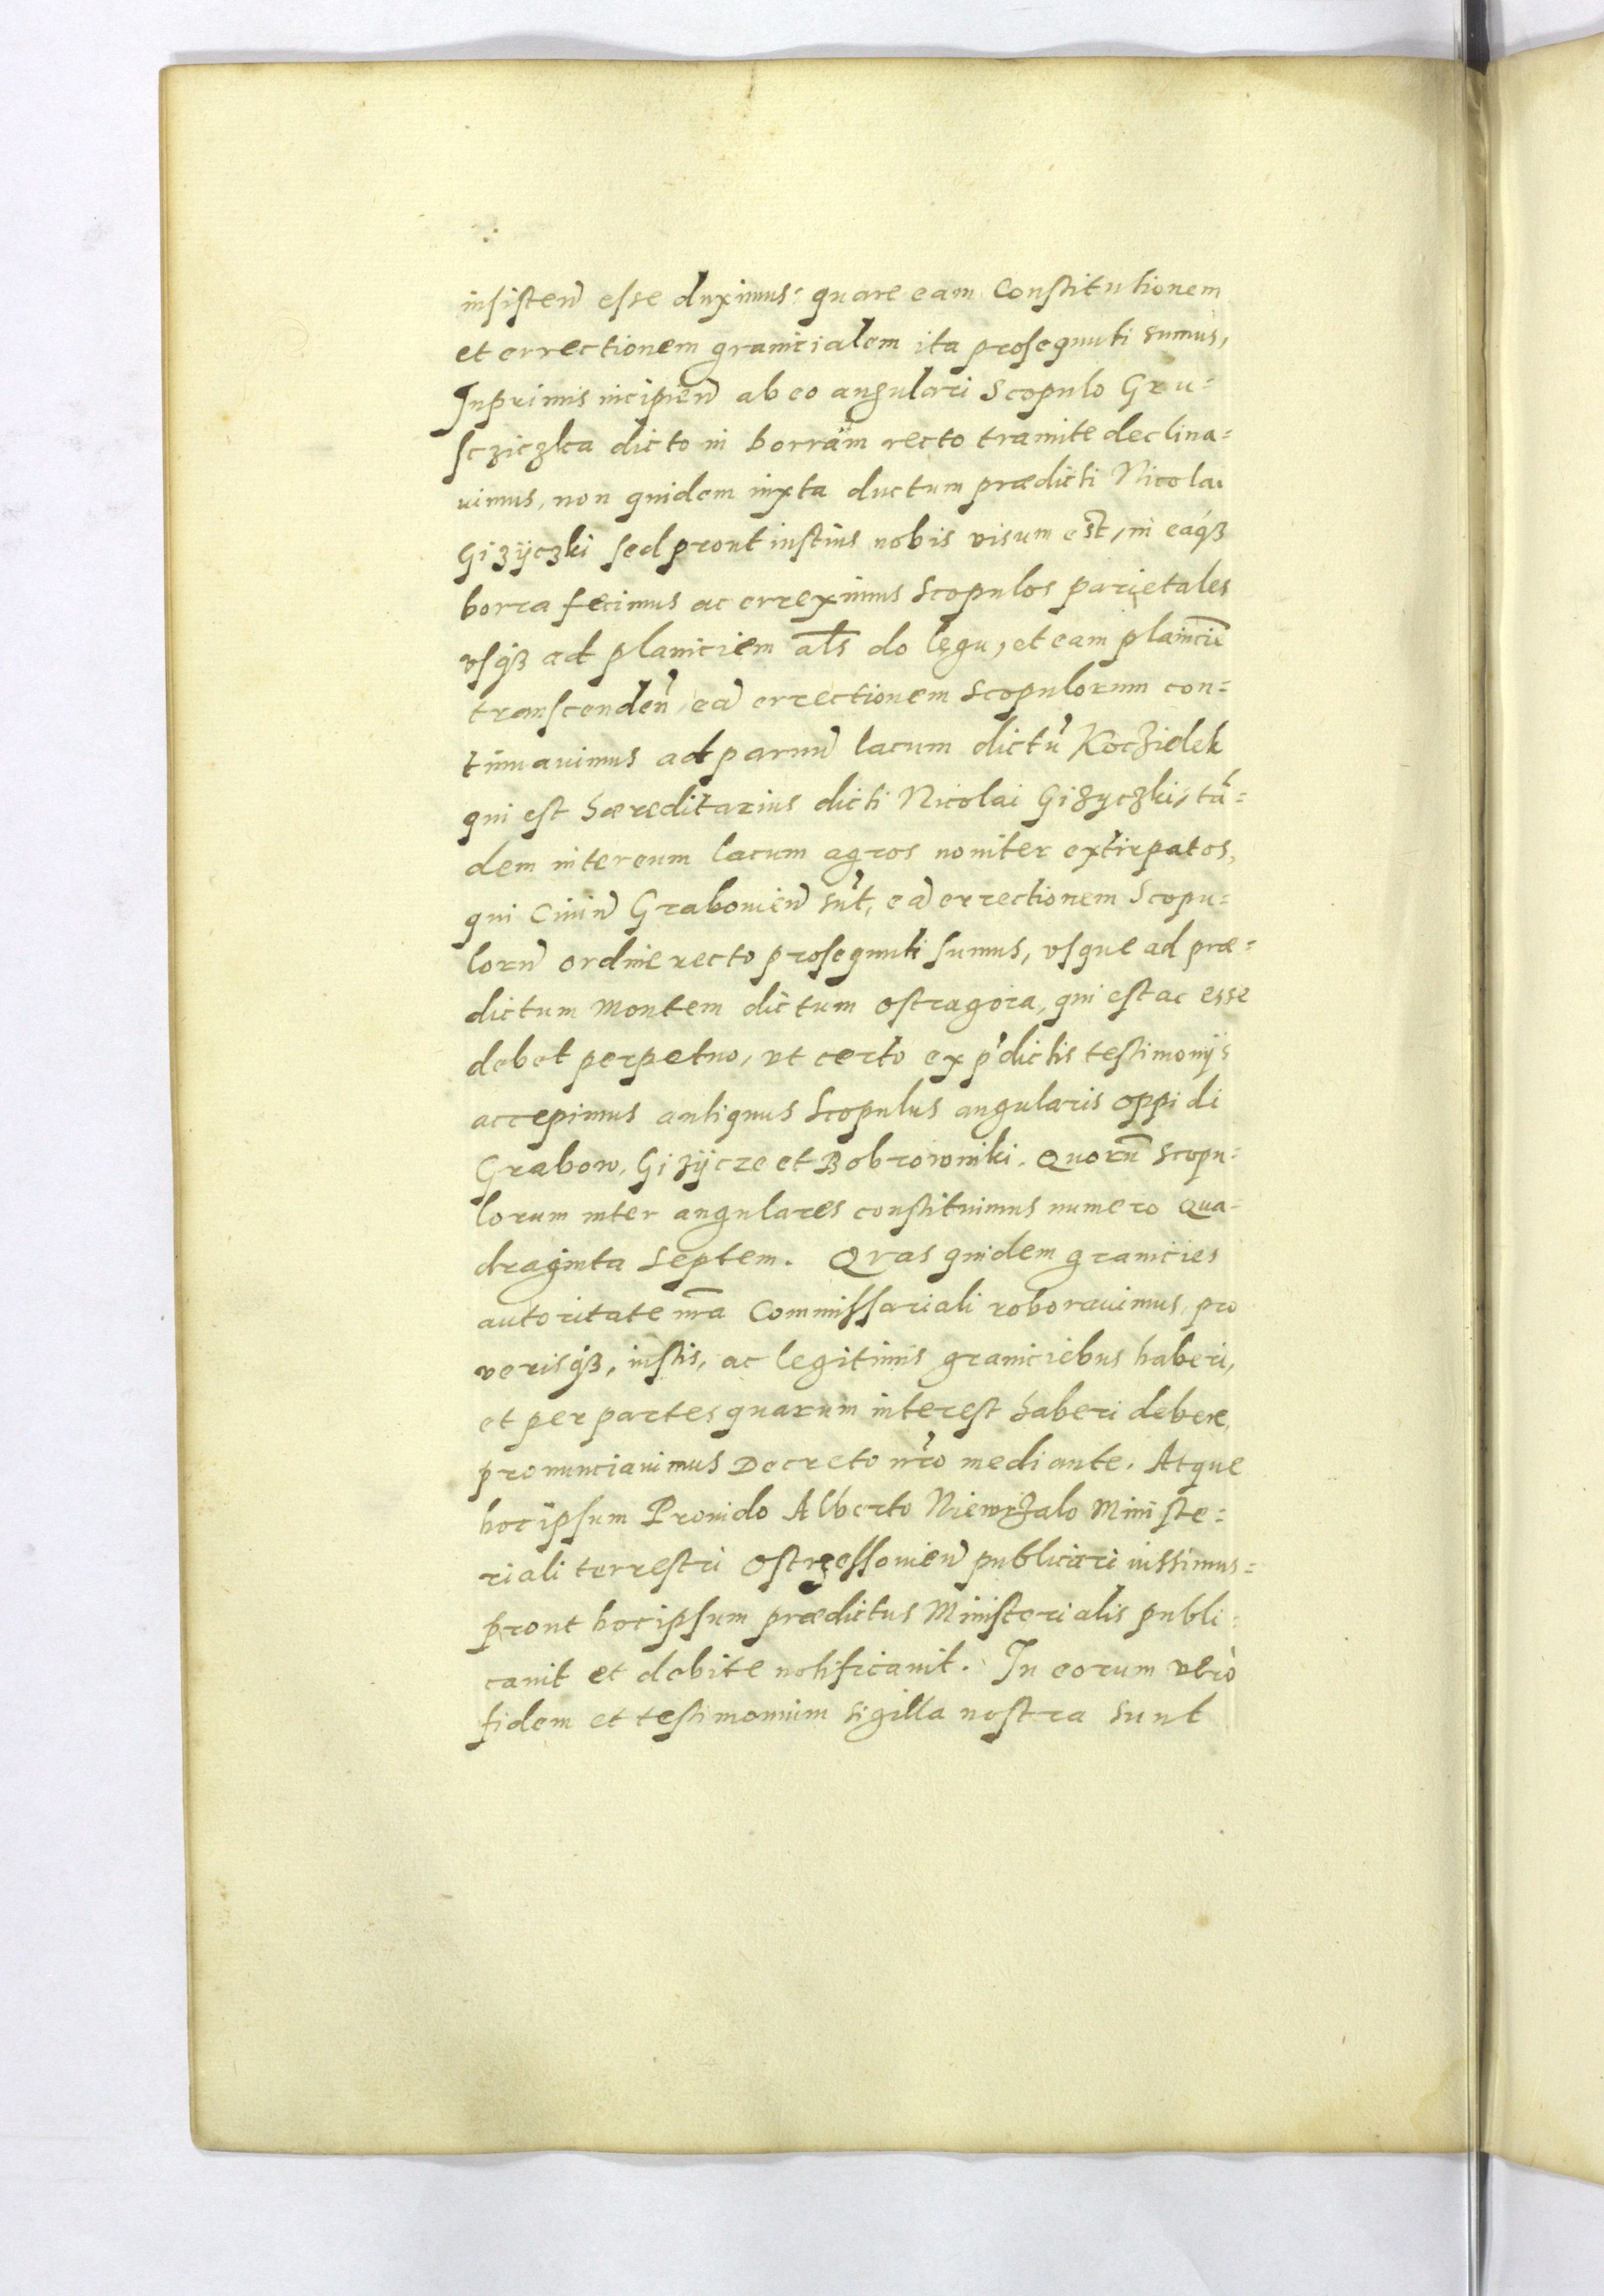 insisten̄ esse duximus: quare eam Constitutionem
et errectionem granicialem ita prosequuti sumus,
Inprimis incipien̄ ab eo angulari Scopulo Gru=
scziczka dicto in borram recto tramite declina=
uimus, non quidem iuxta ductum prædicti Nicolai
Giżÿczki sed prout iustius nobis visum est, in eaq́ꝫ
borra fecimus ac erreximus Scopulos parietales
vsq́ꝫ ad planiciem al̄s do lęgu, et eam planiciē
transcenden̄, eā errectionem Scopulorum con=
tinuauimus ad paruū lacum dictū Koczidlek
qui est hæreditarius dicti Nicolai Giżyczki, tā=
dem inter eum lacum agros nouiter extirpatos,
qui Ciuiū Grabouien̄ sūt, eā errectionem Scopu=
lorū ordine recto prosequuti sumus, vsque ad præ=
dictum Montem dictum ostragora, qui est ac esse
debet perpetuo, vt certo ex p̄dictis testimonijs
accepimus antiquus Scopulus angularis oppidi
Grabow, Giżÿcze et Bobrowniki. Quorū Scopu=
lorum inter angulares constituimus numero Qua=
draginta Septem. Qvas quidem granicies
autoritate n̄ra Commissariali roborauimus, pro
verisq́ꝫ, iustis, ac legitimis graniciebus haberi,
et per partes quarum interest haberi debere,
pronunciauimus Decreto n̄ro mediante. Atque
hoc ipsum Prouido Alberto Niewrzalo Ministe=
riali terrestri Ostrzessouien̄ publicari iussimus=
prout hoc ipsum prædictus Ministerialis publi=
cauit et debite notificauit. In eorum verò
fidem et testimonium sigilla nostra sunt